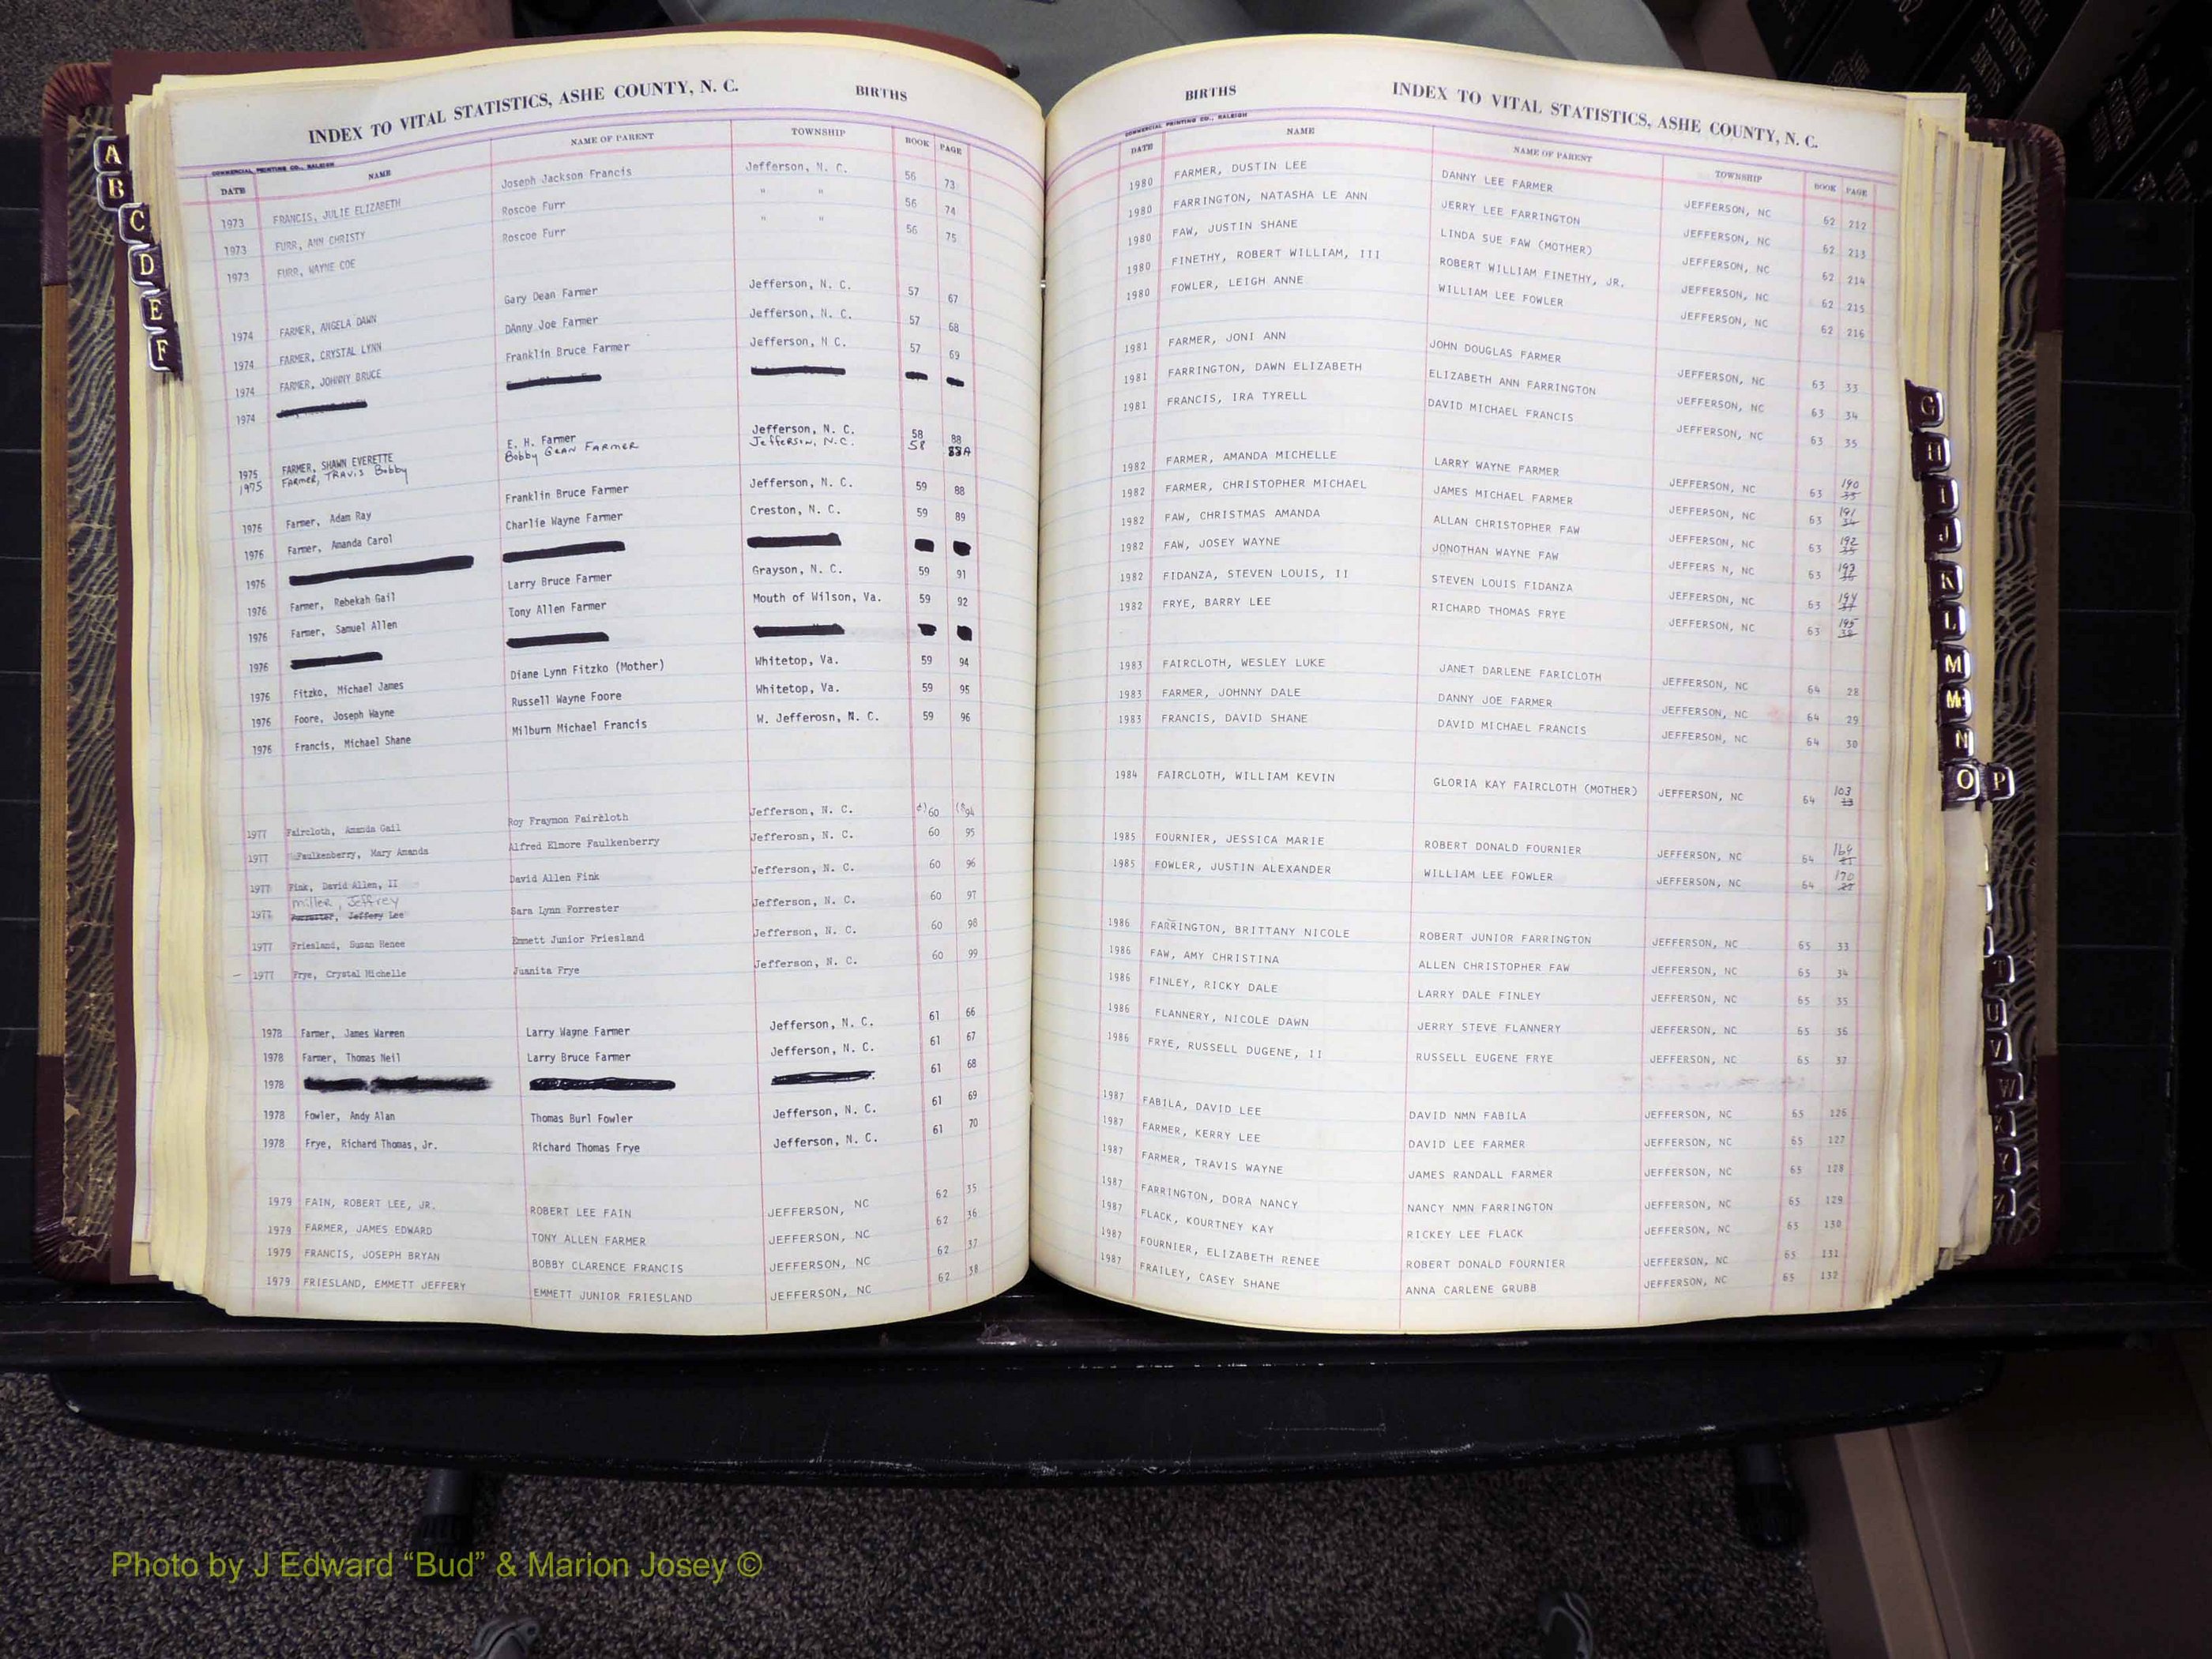 INDEX TO VITAL STATISTICS, ASHE COUNTY, N. C. BIRTHS
COMMERCIAL PRINTING CO., RALEIGH
DATE NAME NAME OF PARENT TOWNSHIP BOOK PAGE
1973 FRANCIS, JULIE ELIZABETH Joseph Jackson Francis Jefferson, N. C. 56 73
1973 FURR, ANN CHRISTY Roscoe Furr " " 56 74
1973 FURR, WAYNE COE Roscoe Furr " " 56 75
1974 FARMER, ANGELA DAWN Gary Dean Farmer Jefferson, N. C. 57 67
1974 FARMER, CRYSTAL LYNN DAnny Joe Farmer Jefferson, N. C. 57 68
1974 FARMER, JOHNNY BRUCE Franklin Bruce Farmer Jefferson, N C. 57 69
1974
1975 FARMER, SHAWN EVERETTE E. H. Farmer Jefferson, N. C. 58 88
1975 FARMER, TRAVIS Bobby Bobby GEAN FARMER JEFFERSON, N.C. 58 88A
1976 Farmer, Adam Ray Franklin Bruce Farmer Jefferson, N. C. 59 88
1976 Farmer, Amanda Carol Charlie Wayne Farmer Creston, N. C. 59 89
1976
1976 Farmer, Rebekah Gail Larry Bruce Farmer Grayson, N. C. 59 91
1976 Farmer, Samuel Allen Tony Allen Farmer Mouth of Wilson, Va. 59 92
1976
1976 Fitzko, Michael James Diane Lynn Fitzko (Mother) Whitetop, Va. 59 94
1976 Foore, Joseph Wayne Russell Wayne Foore Whitetop, Va. 59 95
1976 Francis, Michael Shane Milburn Michael Francis W. Jefferosn, N. C. 59 96
1977 Faircloth, Amanda Gail Roy Fraymon Faircloth Jefferson, N. C. 60 94
1977 Faulkenberry, Mary Amanda Alfred Elmore Faulkenberry Jefferosn, N. C. 60 95
1977 Fink, David Allen, II David Allen Fink Jefferson, N. C. 60 96
miller, Jeffrey
1977 Forrester, Jeffery Lee Sara Lynn Forrester Jefferson, N. C. 60 97
1977 Friesland, Susan Renee Emmett Junior Friesland Jefferson, N. C. 60 98
— 1977 Frye, Crystal Michelle Juanita Frye Jefferson, N. C. 60 99
1978 Farmer, James Warren Larry Wayne Farmer Jefferson, N. C. 61 66
1978 Farmer, Thomas Neil Larry Bruce Farmer Jefferson, N. C. 61 67
1978 61 68
1978 Fowler, Andy Alan Thomas Burl Fowler Jefferson, N. C. 61 69
1978 Frye, Richard Thomas, Jr. Richard Thomas Frye Jefferson, N. C. 61 70
1979 FAIN, ROBERT LEE, JR. ROBERT LEE FAIN JEFFERSON, NC 62 35
1979 FARMER, JAMES EDWARD TONY ALLEN FARMER JEFFERSON, NC 62 36
1979 FRANCIS, JOSEPH BRYAN BOBBY CLARENCE FRANCIS JEFFERSON, NC 62 37
1979 FRIESLAND, EMMETT JEFFERY EMMETT JUNIOR FRIESLAND JEFFERSON, NC 62 38
BIRTHS INDEX TO VITAL STATISTICS, ASHE COUNTY, N. C.
COMMERCIAL PRINTING CO., RALEIGH
DATE NAME NAME OF PARENT TOWNSHIP BOOK PAGE
1980 FARMER, DUSTIN LEE DANNY LEE FARMER JEFFERSON, NC 62 212
1980 FARRINGTON, NATASHA LE ANN JERRY LEE FARRINGTON JEFFERSON, NC 62 213
1980 FAW, JUSTIN SHANE LINDA SUE FAW (MOTHER) JEFFERSON, NC 62 214
1980 FINETHY, ROBERT WILLIAM, III ROBERT WILLIAM FINETHY, JR. JEFFERSON, NC 62 215
1980 FOWLER, LEIGH ANNE WILLIAM LEE FOWLER JEFFERSON, NC 62 216
1981 FARMER, JONI ANN JOHN DOUGLAS FARMER JEFFERSON, NC 63 33
1981 FARRINGTON, DAWN ELIZABETH ELIZABETH ANN FARRINGTON JEFFERSON, NC 63 34
1981 FRANCIS, IRA TYRELL DAVID MICHAEL FRANCIS JEFFERSON, NC 63 35
1982 FARMER, AMANDA MICHELLE LARRY WAYNE FARMER JEFFERSON, NC 63 190
1982 FARMER, CHRISTOPHER MICHAEL JAMES MICHAEL FARMER JEFFERSON, NC 63 191
1982 FAW, CHRISTMAS AMANDA ALLAN CHRISTOPHER FAW JEFFERSON, NC 63 192
1982 FAW, JOSEY WAYNE JONOTHAN WAYNE FAW JEFFERS N, NC 63 193
1982 FIDANZA, STEVEN LOUIS, II STEVEN LOUIS FIDANZA JEFFERSON, NC 63 194
1982 FRYE, BARRY LEE RICHARD THOMAS FRYE JEFFERSON, NC 63 195
1983 FAIRCLOTH, WESLEY LUKE JANET DARLENE FARICLOTH JEFFERSON, NC 64 28
1983 FARMER, JOHNNY DALE DANNY JOE FARMER JEFFERSON, NC 64 29
1983 FRANCIS, DAVID SHANE DAVID MICHAEL FRANCIS JEFFERSON, NC 64 30
1984 FAIRCLOTH, WILLIAM KEVIN GLORIA KAY FAIRCLOTH (MOTHER) JEFFERSON, NC 64 103
1985 FOURNIER, JESSICA MARIE ROBERT DONALD FOURNIER JEFFERSON, NC 64
1985 FOWLER, JUSTIN ALEXANDER WILLIAM LEE FOWLER JEFFERSON, NC 64 170
1986 FARRINGTON, BRITTANY NICOLE ROBERT JUNIOR FARRINGTON JEFFERSON, NC 65 33
1986 FAW, AMY CHRISTINA ALLEN CHRISTOPHER FAW JEFFERSON, NC 65 34
1986 FINLEY, RICKY DALE LARRY DALE FINLEY JEFFERSON, NC 65 35
1986 FLANNERY, NICOLE DAWN JERRY STEVE FLANNERY JEFFERSON, NC 65 36
1986 FRYE, RUSSELL DUGENE, II RUSSELL EUGENE FRYE JEFFERSON, NC 65 37
1987 FABILA, DAVID LEE DAVID NMN FABILA JEFFERSON, NC 65 126
1987 FARMER, KERRY LEE DAVID LEE FARMER JEFFERSON, NC 65 127
1987 FARMER, TRAVIS WAYNE JAMES RANDALL FARMER JEFFERSON, NC 65 128
1987 FARRINGTON, DORA NANCY NANCY NMN FARRINGTON JEFFERSON, NC 65 129
1987 FLACK, KOURTNEY KAY RICKEY LEE FLACK JEFFERSON, NC 65 130
1987 FOURNIER, ELIZABETH RENEE ROBERT DONALD FOURNIER JEFFERSON, NC 65 131
1987 FRAILEY, CASEY SHANE ANNA CARLENE GRUBB JEFFERSON, NC 65 132
A
B
C
D
E
F
G
H
I
J
K
L
M
Mc
N
O P
T
U
V
W
Y
VITAL STATISTICS BIRTHS
Photo by J Edward “Bud” & Marion Josey ©